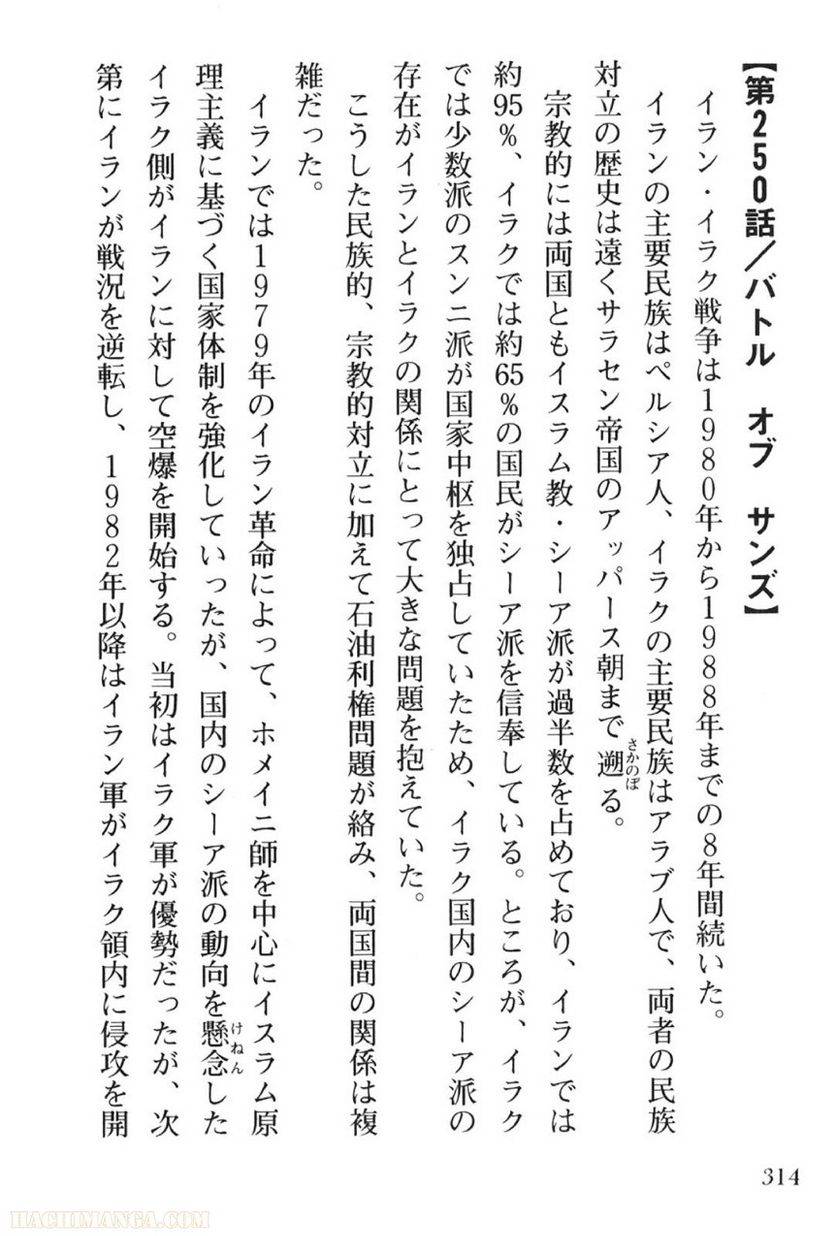 【第250話／バトル　オブ　サンズ】
イラン・イラク戦争は1980年から1988年までの8年間続いた。
イランの主要民族はペルシア人、イラクの主要民族はアラブ人で、両者の民族
対立の歴史は遠くサラセン帝国のアッパース朝まで遡る。
さかのぼ
宗教的には両国ともイスラム教・シーア派が過半数を占めており、イランでは
約95％、イラクでは約65％の国民がシーア派を信奉している。ところが、イラク
では少数派のスンニ派が国家中枢を独占していたため、イラク国内のシーア派の
存在がイランとイラクの関係にとって大きな問題を抱えていた。
こうした民族的、宗教的対立に加えて石油利権問題が絡み、両国間の関係は複
雑だった。
イランでは1979年のイラン革命によって、ホメイニ師を中心にイスラム原
理主義に基づく国家体制を強化していったが、国内のシーア派の動向を懸念した
けねん
イラク側がイランに対して空爆を開始する。当初はイラク軍が優勢だったが、次
第にイランが戦況を逆転し、1982年以降はイラン軍がイラク領内に侵攻を開
314
HACHIMANGA.COM